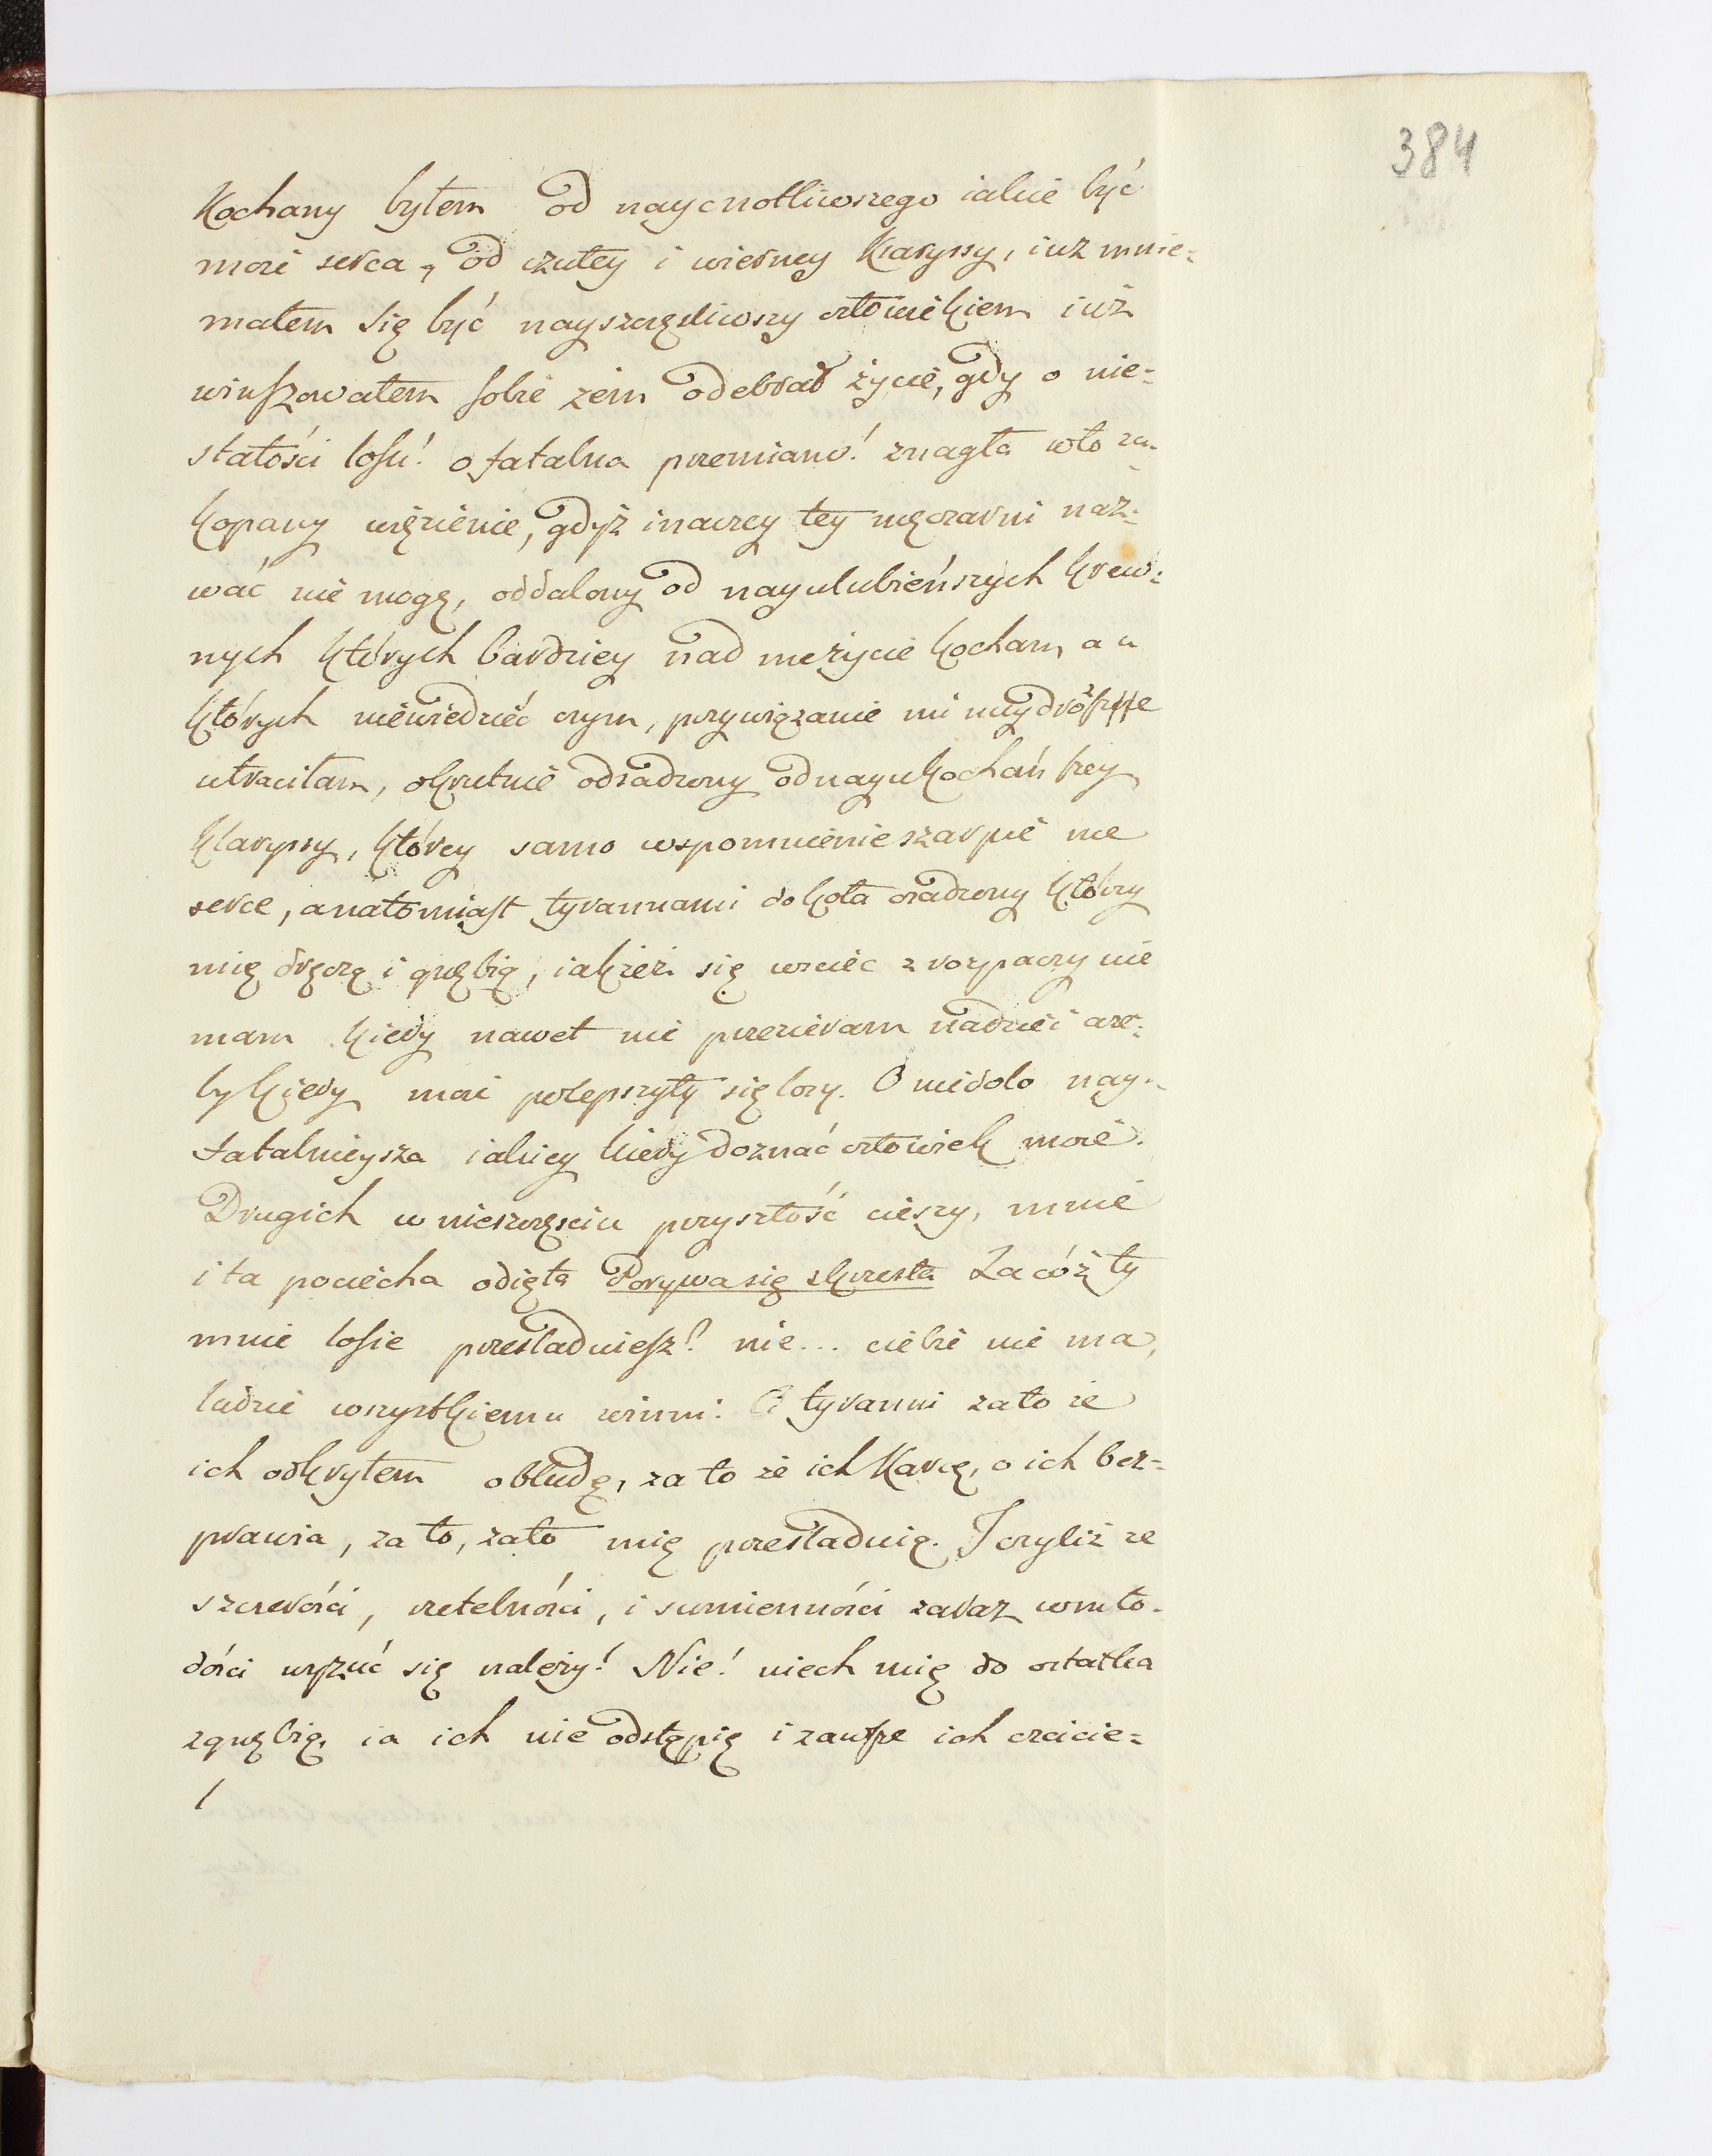 384
Kochany byłem od naycnotliwszego iakie być
może serca, od czułey i wierney Klaryssy, iuż mnie-
małem się być nayszczęśliwszy człowiekiem iuż
winszowałem sobie żem odebrał życie, gdy o nie-
stałości losu! o fatalna przemiano! znagła wto za-
kopany więzienie, gdyż inaczey tey męczarni naz-
wać nie mogę, oddalony od nayulubieńszych krew-
nych których bardziey nad me życie kocham, a u
których niewiedzieć czym, przywiązanie mi naydroższe
utraciłam, okrutnie odsadzony od nayukochańszey
Klaryssy, którey samo wspomnienie szarpie me
serce, a natomiast tyrannami dokoła osadzony którzy
mię dręczą i gnębią, iakżeż się wściec z rozpaczy nie
mam kiedy nawet nie przezieram nadziei aże-
by kiedy moie polepszyły się losy. O niedolo nay-
fatalnieysza iakiey kiedy doznać człowiek może.
Drugich w nieszczęściu przyszłość cieszy, mnie
i ta pociecha odięta Porywa się skrzesła Za cóż ty
mnie losie prześladuiesz? nie... ciebie nie ma,
ludzie wszystkiemu winni. Ci tyranni zato że
ich odkryłem obłudę, za to że ich karcę, o ich bez-
prawia, za to, zato mię prześladuią. I czyliż ze
szczerości, rzetelności, i sumienności zaraz w mło-
dości wyzuć się należy? Nie! niech mię do ostatka
zgnębią, ia ich nie odstąpię i zawsze ich czcicie-
l